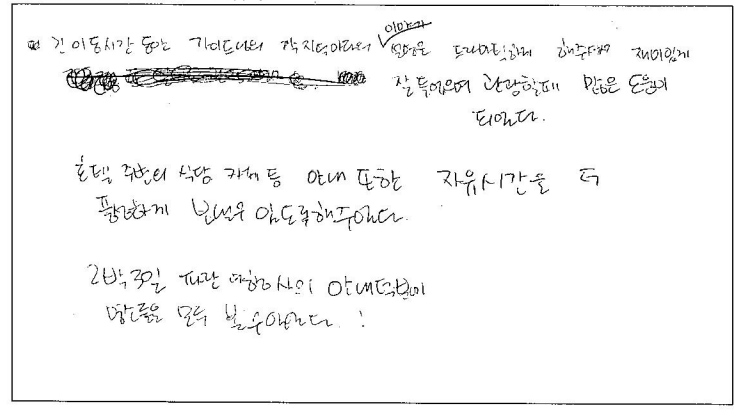 긴 이동시간 동안 가이드님의 각 지역마다의 이야기 설명을 드라마틱하게 해주셔서 재미있게
잘 들었으며 관광할때 많은 도움이
되었다.
호텔 주변의 식당 카페 등 안내 또한 자유시간을 더
풍성하게 보낼수 있도록 해주었다.
2박3일 여행사의 안내덕분에
명소들을 모두 볼 수 있었다!